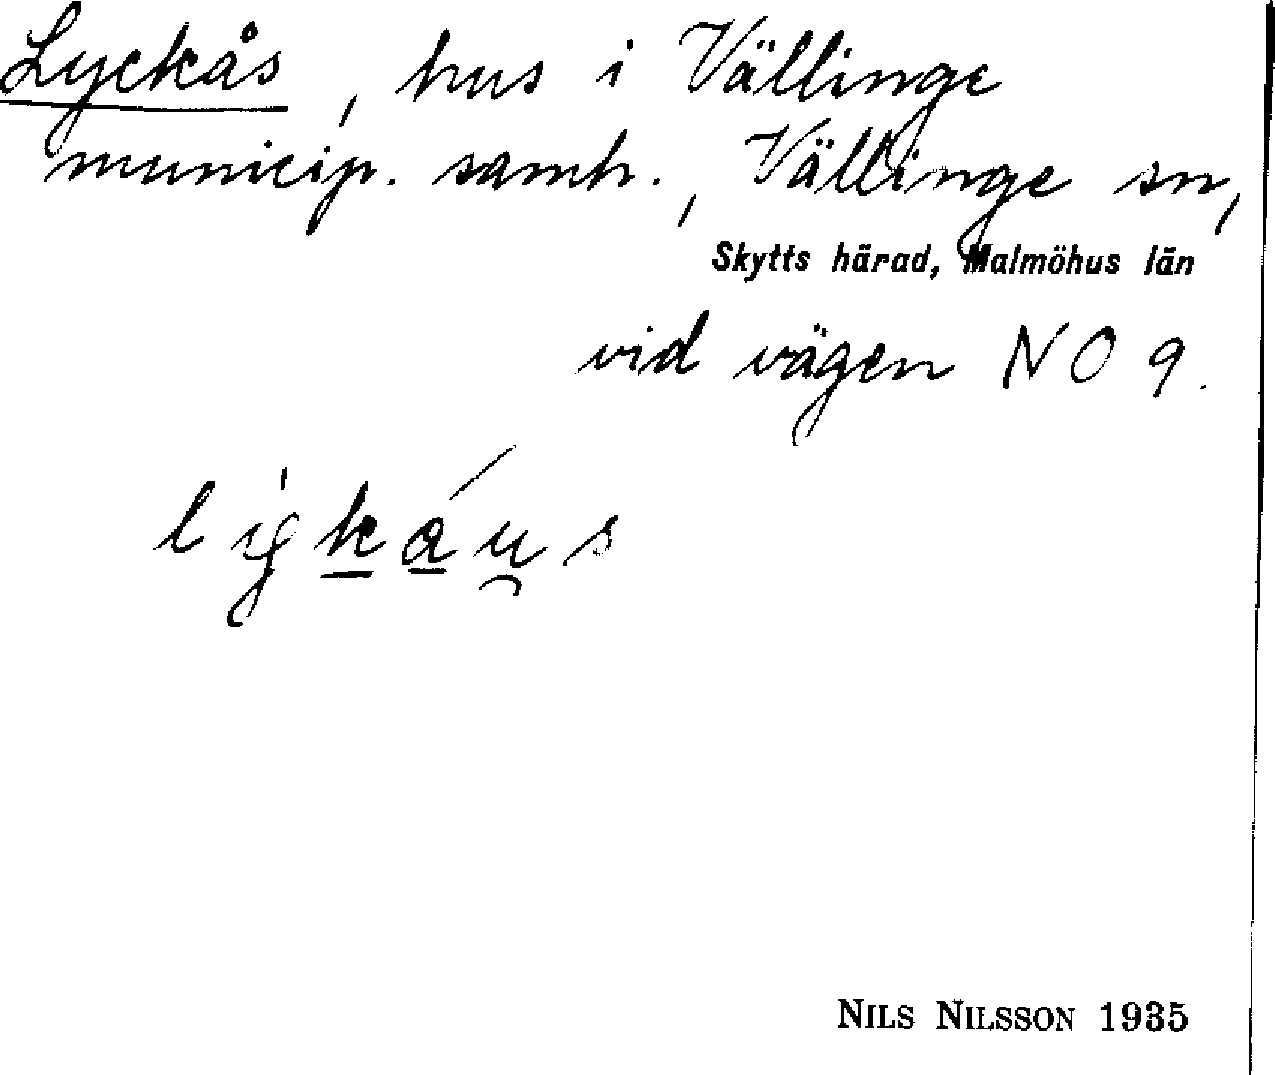 Lyckås, hus i Vällinge
municip. samh., Vällinge sn,
Skytts härad, Malmöhus län
vid vägen NO 9.
NILS NILSSON 1935